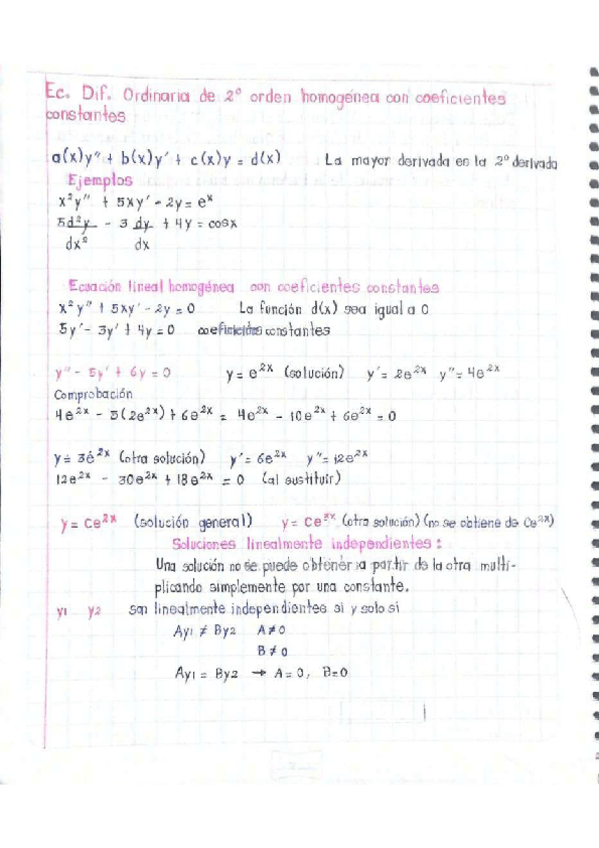 Ec. Dif. Ordinaria de 2º orden homogénea con coeficientes
constantes
a(x)y" + b(x)y' + c(x)y = d(x) La mayor derivada es la 2º derivada
Ejemplos
x²y" + 5xy' - 2y = eˣ
5d²y - 3 dy + 4y = cosx
dx² dx
Ecuación lineal homogénea con coeficientes constantes
x²y" + 5xy' - 2y = 0 La función d(x) sea igual a 0
5y' - 3y' + 4y = 0 coeficientes constantes
y" - 5y' + 6y = 0 y = e²ˣ (solución) y' = 2e²ˣ y" = 4e²ˣ
Comprobación
4e²ˣ - 5(2e²ˣ) + 6e²ˣ = 4e²ˣ - 10e²ˣ + 6e²ˣ = 0
y = 3e²ˣ (otra solución) y' = 6e²ˣ y" = 12e²ˣ
12e²ˣ - 30e²ˣ + 18e²ˣ = 0 (al sustituir)
y = Ce²ˣ (solución general) y = Ce³ˣ (otra solución) (no se obtiene de Ce²ˣ)
Soluciones linealmente independientes:
Una solución no se puede obtener a partir de la otra multi-
plicando simplemente por una constante.
y1 y2 son linealmente independientes si y solo si
Ay1 ≠ By2 A≠0
B≠0
Ay1 = By2 → A=0, B=0